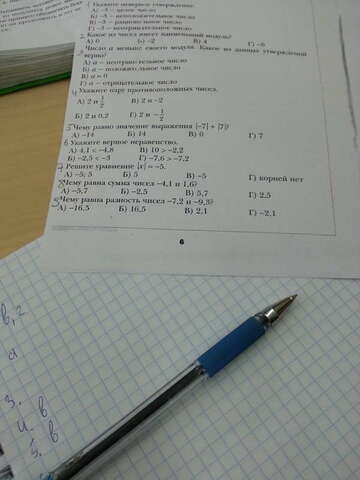 Укажите неверное утверждение.
А) –3 — целое число
Б) –3 — неположительное число
В) –3 — рациональное число
Г) –3 — неотрицательное число
2 Какое из чисел имеет наименьший модуль?
А) 0 Б) –2 В) 4 Г) –6
Число a меньше своего модуля. Какое из данных утверждений верно?
А) a — неотрицательное число
Б) a — положительное число
В) a = 0
Г) a — отрицательное число
4 Укажите пару противоположных чисел.
А) 2 и 1/2 В) 2 и –2
Б) 2 и 0,2 Г) 2 и –1/2
5 Чему равно значение выражения |–7| + |7|?
А) –14 Б) 14 В) 0 Г) 7
6 Укажите верное неравенство.
А) 4,1 < –4,8 В) 10 > –2,2
Б) –2,5 < –3 Г) –7,6 > –7,2
7 Решите уравнение |x| = –5.
А) –5; 5 Б) 5 В) –5 Г) корней нет
8 Чему равна сумма чисел –4,1 и 1,6?
А) –5,7 Б) –2,5 В) 5,7 Г) 2,5
9 Чему равна разность чисел –7,2 и –9,3?
А) –16,5 Б) 16,5 В) 2,1 Г) –2,1
6
3.
4. в
5. в